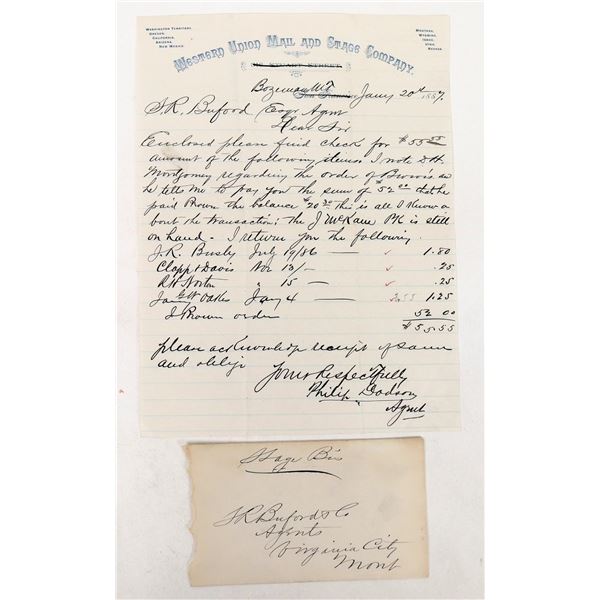 WASHINGTON TERRITORY,
OREGON,
CALIFORNIA,
ARIZONA,
NEW MEXICO.
MONTANA,
WYOMING,
IDAHO,
UTAH,
NEVADA.
WESTERN UNION MAIL AND STAGE COMPANY.
STUART STREET
Bozeman M.T. Jany 20th 1887.
S.R. Buford Esqr Agent
Dear Sir
Enclosed please find check for $55 55
amount of the following items I note D.H.
Montgomery regarding the order of as
he tells me to pay you the sum of $52 00 that he
paid Brown the balance $20 this is all I know a
bout the transaction; the J McKane PK is still
on hand. - I return you the following.
J.R. Busby July 19/86 — 1.80
Clapp & Davis Nov 13/- .25
R.H. Norton " 15 — .25
Jas W Oakes Jany 4 — 2.55 1.25
J Brown order 52 00
$55.55
please acknowledge receipt of same
and oblige
Yours Respectfully
Philip Dodson
Agent
Stage Bis
S.R. Buford & Co
Agents
Virginia City
Mont